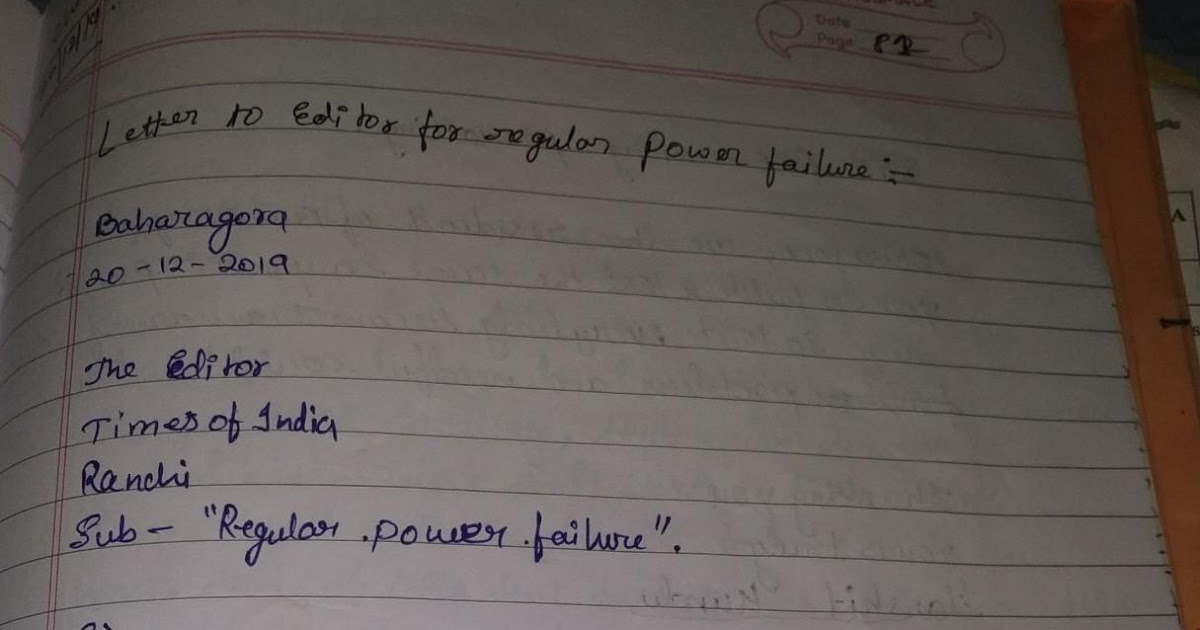 Date
Page 82
Letter to Editor for regular power failure :-
Baharagora
20-12-2019
The Editor
Times of India
Ranchi
Sub- "Regular .power .failure".
A